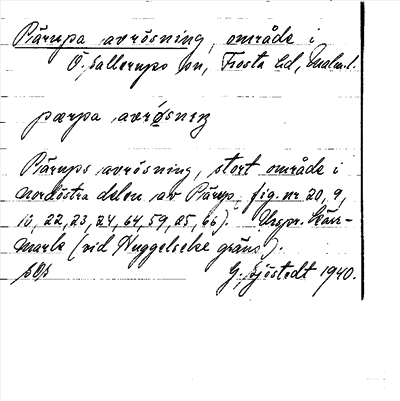 Pärups avrösning, område i
Ö. Sallerups sn, Frosta hd, Malm. l.
pærpa avrøsneŋ
Pärups avrösning, stort område i
nordöstra delen av Pärup, fig. nr 20, 9,
10, 22, 23, 24, 64, 59, 65, 66). Urspr. kärr-
mark (vid Huggelseke gräns).
G. Sjöstedt 1940.